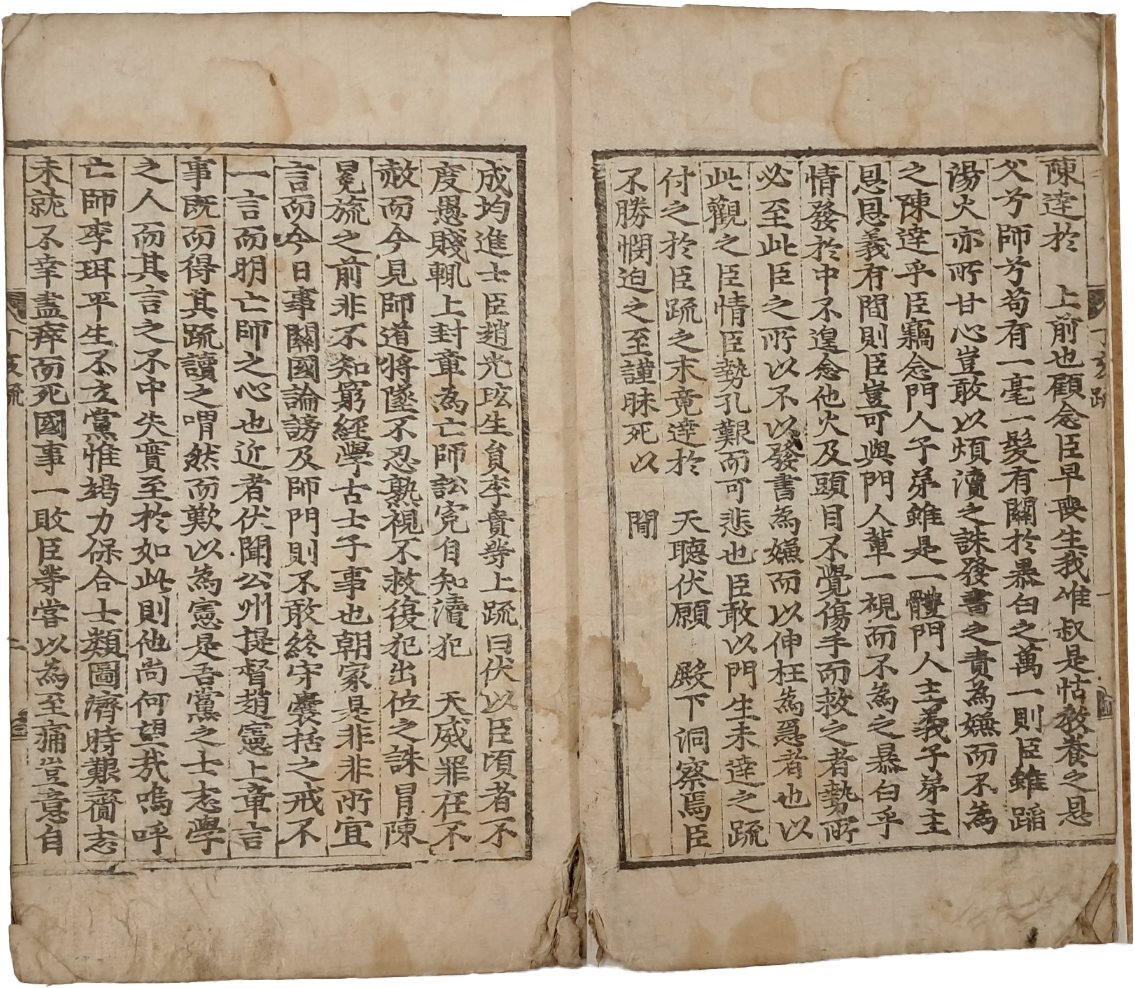 陳達於 上前也顧念臣早喪生我唯叔是怙教養之恩
父兮師兮苟有一毫一髮有關於暴白之萬一則臣雖蹈
湯火亦所甘心豈敢以煩瀆之誅發書之責為嫌而不為
之陳達乎臣竊念門人子弟雖是一體門人主義子弟主
恩恩義有間則臣豈可與門人輩一視而不為之暴白乎
情發於中不遑念他火及頭目不覺傷手而救之者勢所
必至此臣之所以不以發書為嫌而以伸枉為急者也以
此觀之臣情臣勢孔艱而可悲也臣敢以門生未達之疏
付之於臣疏之末竟達於 天聽伏願 殿下洞察焉臣
不勝憫迫之至謹昧死以 聞
成均進士臣趙光玹生員李貴等上疏曰伏以臣頃者不
度愚賤輒上封章為亡師訟冤自知瀆犯 天威罪在不
赦而今見師道將墜不忍熟視不救復犯出位之誅冒陳
冕旒之前非不知窮經學古士子事也朝家是非非所宜
言而今日事關國論謗及師門則不敢終守囊括之戒不
一言而明亡師之心也近者伏聞公州提督趙憲上章言
事既而得其疏讀之喟然而歎以為憲是吾黨之士志學
之人而其言之不中失實至於如此則他尚何望哉嗚呼
亡師李珥平生不立黨惟竭力保合士類圖濟時艱齎志
未就不幸盡瘁而死國事一敗臣等嘗以為至痛豈意自